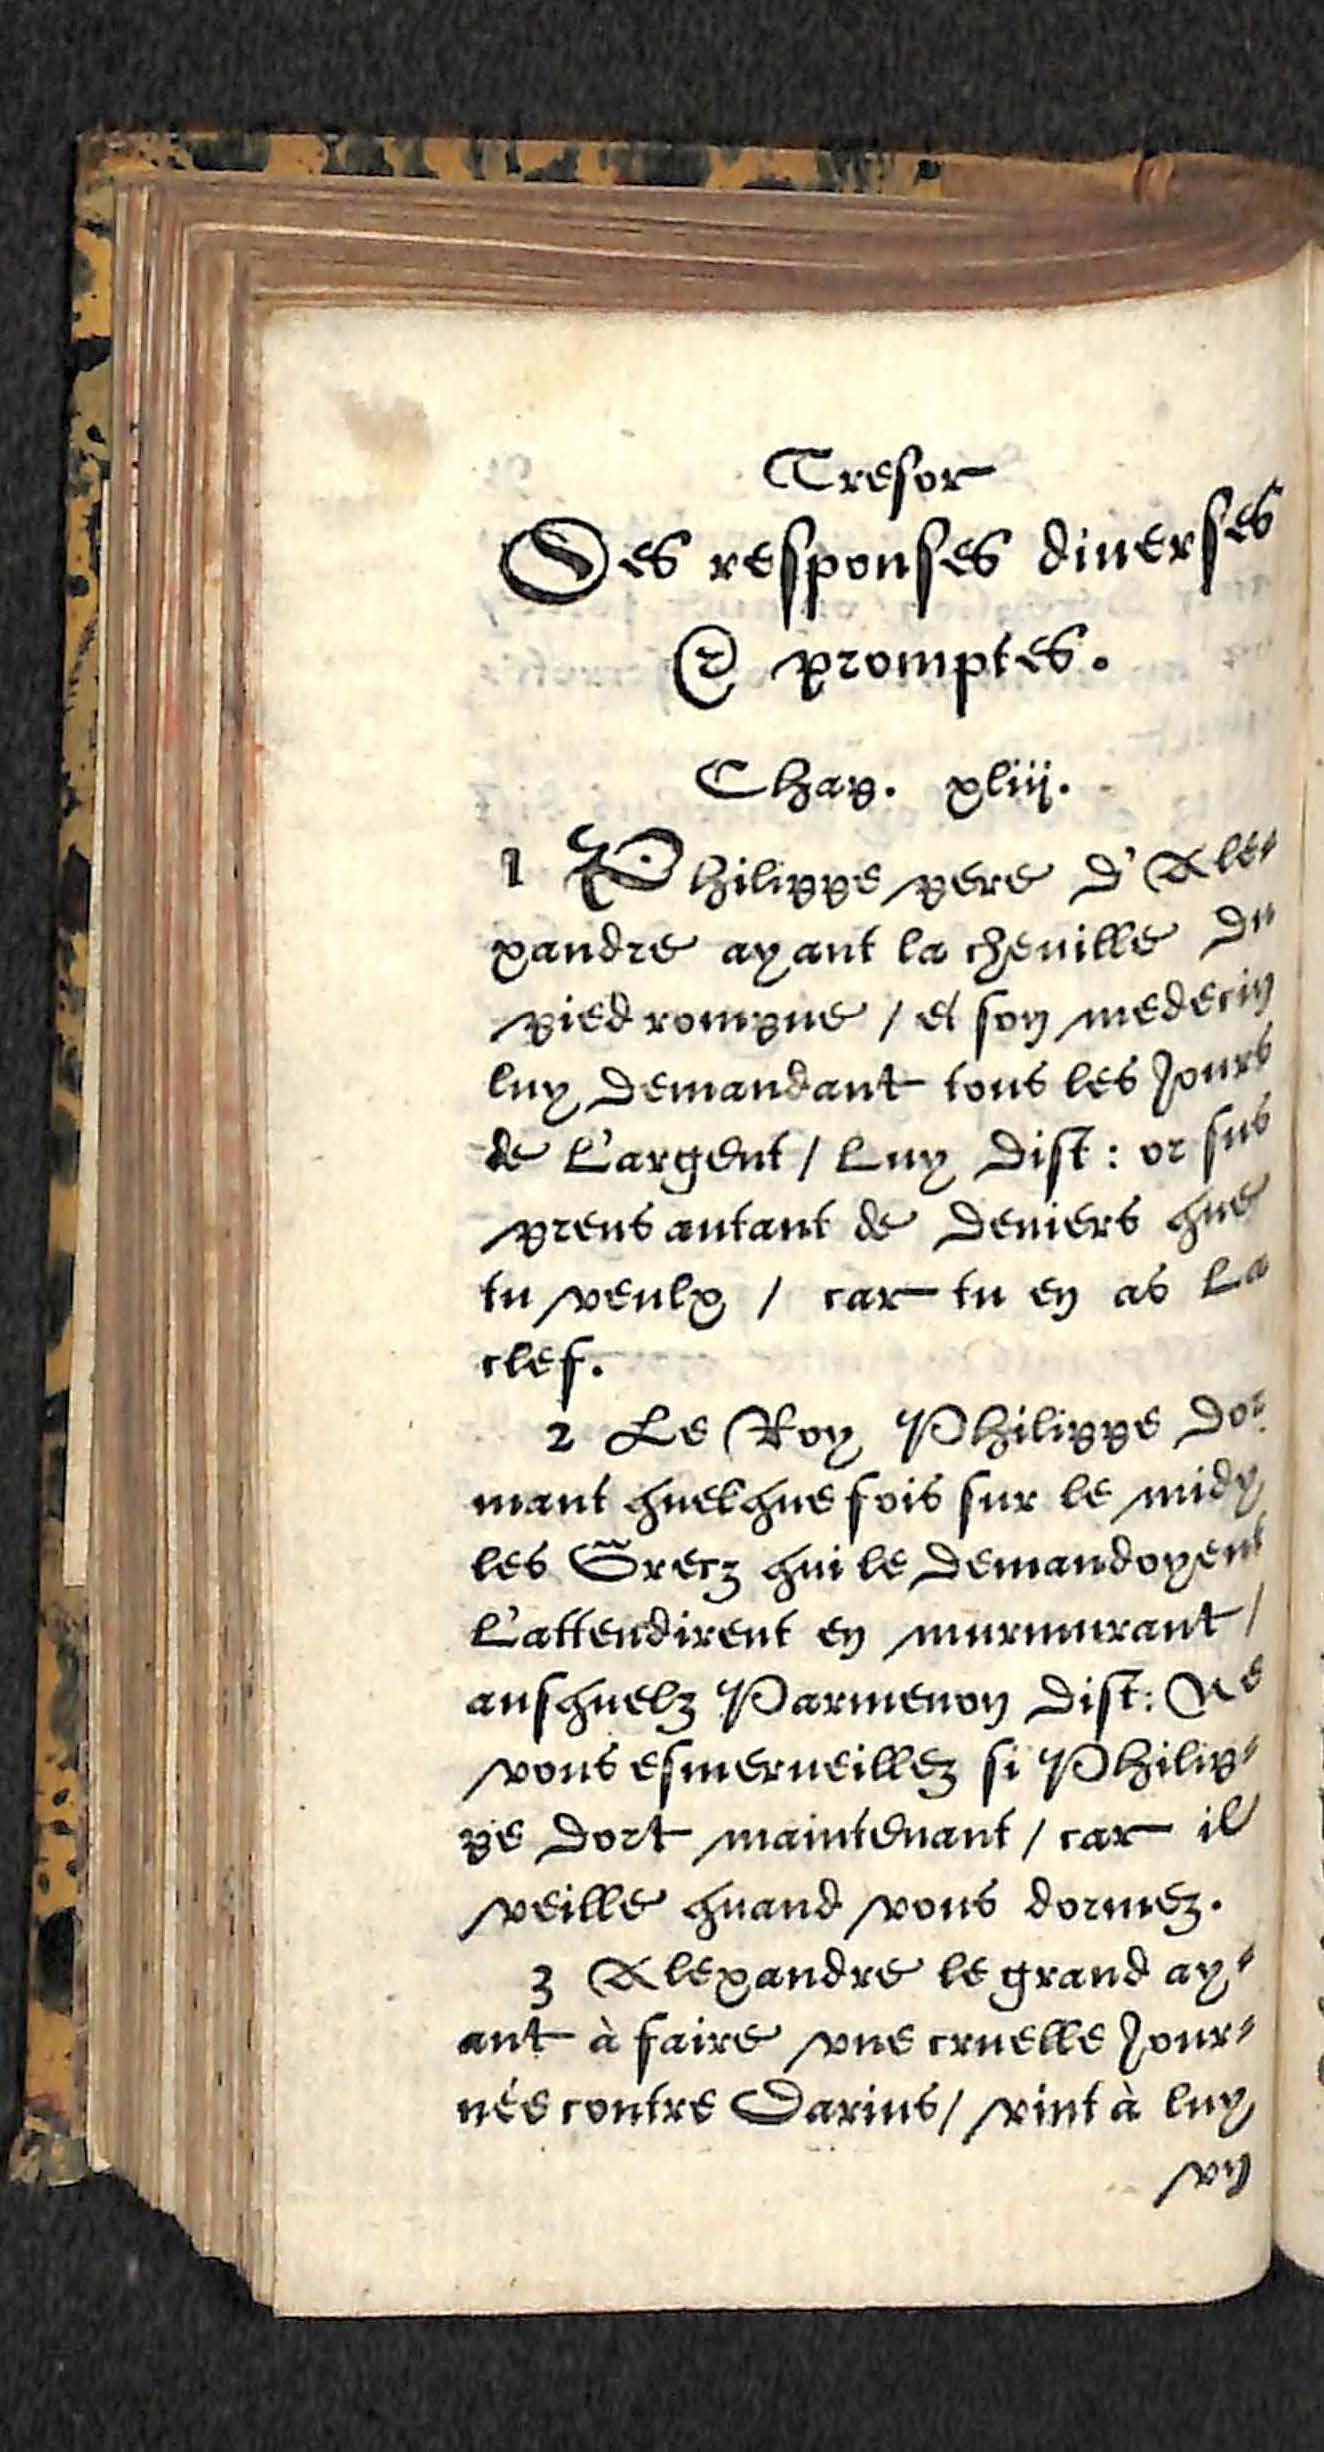 Tresor
Des responses diuerses
& promptes.
Chap. xliij.
1 Philippe pere d'Ale-
xandre ayant la cheuille du
pied rompue / et son medecin
luy demandant tous les Jours
de L'argent / Luy dist : or sus
prens autant de deniers que
tu veulx / car tu en as La
clef.
2 Le Roy Philippe dor-
mant quelque fois sur le midy
les Grecz qui le demandoyent
L'attendirent en murmurant /
ausquelz Parmenon dist : Ne
vous esmerueillez si Philip-
pe dort maintenant / car il
veille quand vous dormez.
3 Alexandre le grand ay-
ant à faire vne cruelle Jour-
née contre Darius / vint à luy
vn